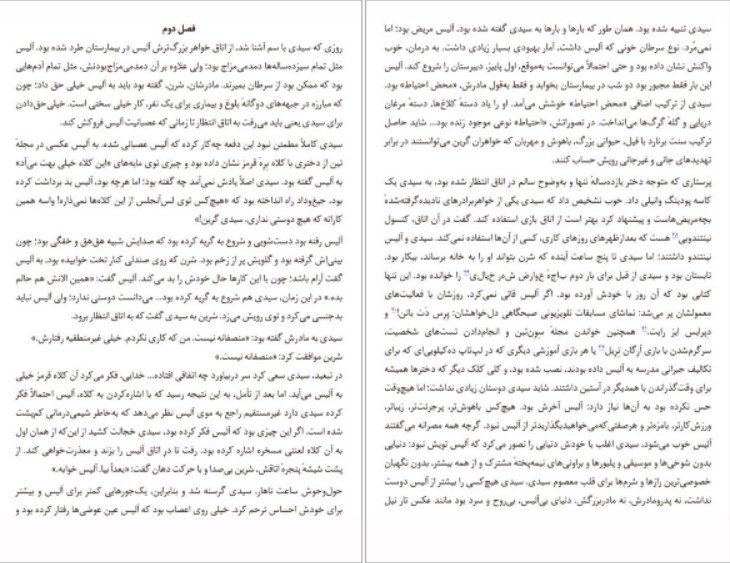 فصل دوم
روزی که سیدی با سم آشنا شد، از اتاق خواهر بزرگ‌ترش آلیس در بیمارستان طرد شده بود. آلیس
مثل تمام سیزده‌ساله‌ها دمدمی‌مزاج بود؛ ولی علاوه بر آن دمدمی‌مزاج‌بودنش، مثل تمام آدم‌هایی
بود که ممکن بود از سرطان بمیرند. مادرشان، شرن، گفته بود باید به آلیس خیلی حق داد؛ چون
که مبارزه در جبهه‌های دوگانهٔ بلوغ و بیماری برای یک نفر، کار خیلی سختی است. خیلی حق‌دادن
برای سیدی یعنی باید می‌رفت به اتاق انتظار تا زمانی که عصبانیت آلیس فروکش کند.
سیدی کاملاً مطمئن نبود این دفعه چه‌کار کرده که آلیس عصبانی شده. به آلیس عکسی در مجلهٔ
تین از دختری با کلاه برهٔ قرمز نشان داده بود و چیزی توی مایه‌های «این کلاه خیلی بهت می‌آد»
به آلیس گفته بود. سیدی اصلاً یادش نمی‌آمد چه گفته بود؛ اما هرچه بود، آلیس بد برداشت کرده
بود، جیغ‌وداد راه انداخته بود که «هیچ‌کس توی لس‌آنجلس از این کلاه‌ها نمی‌ذاره! واسه همین
کاراته که هیچ دوستی نداری، سیدی گرین!»
آلیس رفته بود دست‌شویی و شروع به گریه کرده بود که صدایش شبیه هق‌هق و خفگی بود؛ چون
بینی‌اش گرفته بود و گلویش پر از زخم بود. شرن که روی صندلی کنار تخت خوابیده بود، به آلیس
گفت آرام باشد؛ چون با این کارها حال خودش را بد می‌کند. آلیس گفت: «همین الانش هم حالم
بده.» در این زمان، سیدی هم شروع به گریه کرده بود... می‌دانست دوستی ندارد؛ ولی آلیس نباید
بدجنسی می‌کرد و توی رویش می‌زد. شرین به سیدی گفت که به اتاق انتظار برود.
سیدی به مادرش گفته بود: «منصفانه نیست. من که کاری نکردم. خیلی غیرمنطقیه رفتارش.»
شرین موافقت کرد: «منصفانه نیست.»
در تبعید، سیدی سعی کرد سر دربیاورد چه اتفاقی افتاده... خدایی، فکر می‌کرد آن کلاه قرمز خیلی
به آلیس می‌آید. اما بعد از تأمل، به این نتیجه رسید که با اشاره‌کردن به کلاه، آلیس احتمالاً فکر
کرده سیدی دارد غیرمستقیم راجع به موی آلیس نظر می‌دهد که به‌خاطر شیمی‌درمانی کم‌پشت
شده است. اگر این چیزی بود که آلیس فکر کرده بود، سیدی خجالت کشید از این‌که از همان اول
به آن کلاه لعنتی مسخره اشاره کرده بود. رفت تا در اتاق آلیس را بزند و معذرت‌خواهی کند. از
پشت شیشهٔ پنجرهٔ اتاقش، شرین بی‌صدا و با حرکت دهان گفت: «بعداً بیا. آلیس خوابه.»
حول‌وحوش ساعت ناهار، سیدی گرسنه شد و بنابراین، یک‌جورهایی کمتر برای آلیس و بیشتر
برای خودش احساس ترحم کرد. خیلی روی اعصاب بود که آلیس عین عوضی‌ها رفتار کرده بود و
سیدی تنبیه شده بود. همان طور که بارها و بارها به سیدی گفته شده بود، آلیس مریض بود؛ اما
نمی‌مُرد. نوع سرطان خونی که آلیس داشت، آمار بهبودی بسیار زیادی داشت. به درمان، خوب
واکنش نشان داده بود و حتی احتمالاً می‌توانست به‌موقع، اول پاییز، دبیرستان را شروع کند. آلیس
این بار فقط مجبور بود دو شب در بیمارستان بخوابد و فقط به‌قول مادرش، «محض احتیاط» بود.
سیدی از ترکیب اضافی «محض احتیاط» خوشش می‌آمد. او را یاد دستهٔ کلاغ‌ها، دستهٔ مرغان
دریایی و گلهٔ گرگ‌ها می‌انداخت. در تصوراتش، «احتیاط» نوعی موجود زنده بود... شاید حاصل
ترکیب سنت برنارد با فیل، حیوانی بزرگ، باهوش و مهربان که خواهران گرین می‌توانستند در برابر
تهدیدهای جانی و غیرجانی رویش حساب کنند.
پرستاری که متوجه دختر یازده‌سالهٔ تنها و به‌وضوح سالم در اتاق انتظار شده بود، به سیدی یک
کاسه پودینگ وانیلی داد. خوب تشخیص داد که سیدی یکی از خواهربرادرهای نادیده‌گرفته‌شدهٔ
بچه‌مریض‌هاست و پیشنهاد کرد بهتر است از اتاق بازی استفاده کند. گفت در آن اتاق، کنسول
نینتندویی هست که بعدازظهرهای روزهای کاری، کسی از آن‌ها استفاده نمی‌کند. سیدی و آلیس
نینتندو داشتند؛ اما سیدی تا پنج ساعت آینده که شرن بتواند او را به خانه برساند، بیکار بود.
تابستان بود و سیدی از قبل برای بار دوم باجهٔ عوارض شهر خیالی را خوانده بود. این تنها
کتابی بود که آن روز با خودش آورده بود. اگر آلیس قاتی نمی‌کرد، روزشان با فعالیت‌های
معمولشان پر می‌شد: تماشای مسابقات تلویزیونی صبحگاهی دل‌خواهشان: پرس دت باتن! و
دپرایس ایز رایت. همچنین خواندن مجلهٔ سون‌تین و انجام‌دادن تست‌های شخصیت،
سرگرم‌شدن با بازی اُرگان تریل یا هر بازی آموزشی دیگری که در لپ‌تاپ ده‌کیلویی‌ای که برای
تکالیف جبرانی مدرسه به آلیس داده بودند، نصب شده بود، و کلی کلک دیگر که دخترها همیشه
برای وقت‌گذراندن با همدیگر در آستین داشتند. شاید سیدی دوستان زیادی نداشت؛ اما هیچ‌وقت
حس نکرده بود به آن‌ها نیاز دارد: آلیس آخرش بود. هیچ‌کس باهوش‌تر، پرجرئت‌تر، زیباتر،
ورزش‌کارتر، بامزه‌تر و هرصفتی‌که‌می‌خواهیدبگذاریدتر از آلیس نبود. گرچه همه مصرانه می‌گفتند
آلیس خوب می‌شود، سیدی اغلب با خودش دنیایی را تصور می‌کرد که آلیس تویش نبود: دنیایی
بدون شوخی‌ها و موسیقی و پلیورها و براونی‌های نیمه‌پختهٔ مشترک و از همه بیشتر، بدون نگهبان
خصوصی‌ترین رازها و شرم‌ها برای قلب معصوم سیدی. سیدی هیچ‌کسی را بیشتر از آلیس دوست
نداشت، نه پدرومادرش، نه مادربزرگش. دنیای بی‌آلیس، بی‌روح و سرد بود مانند عکس تار نیل